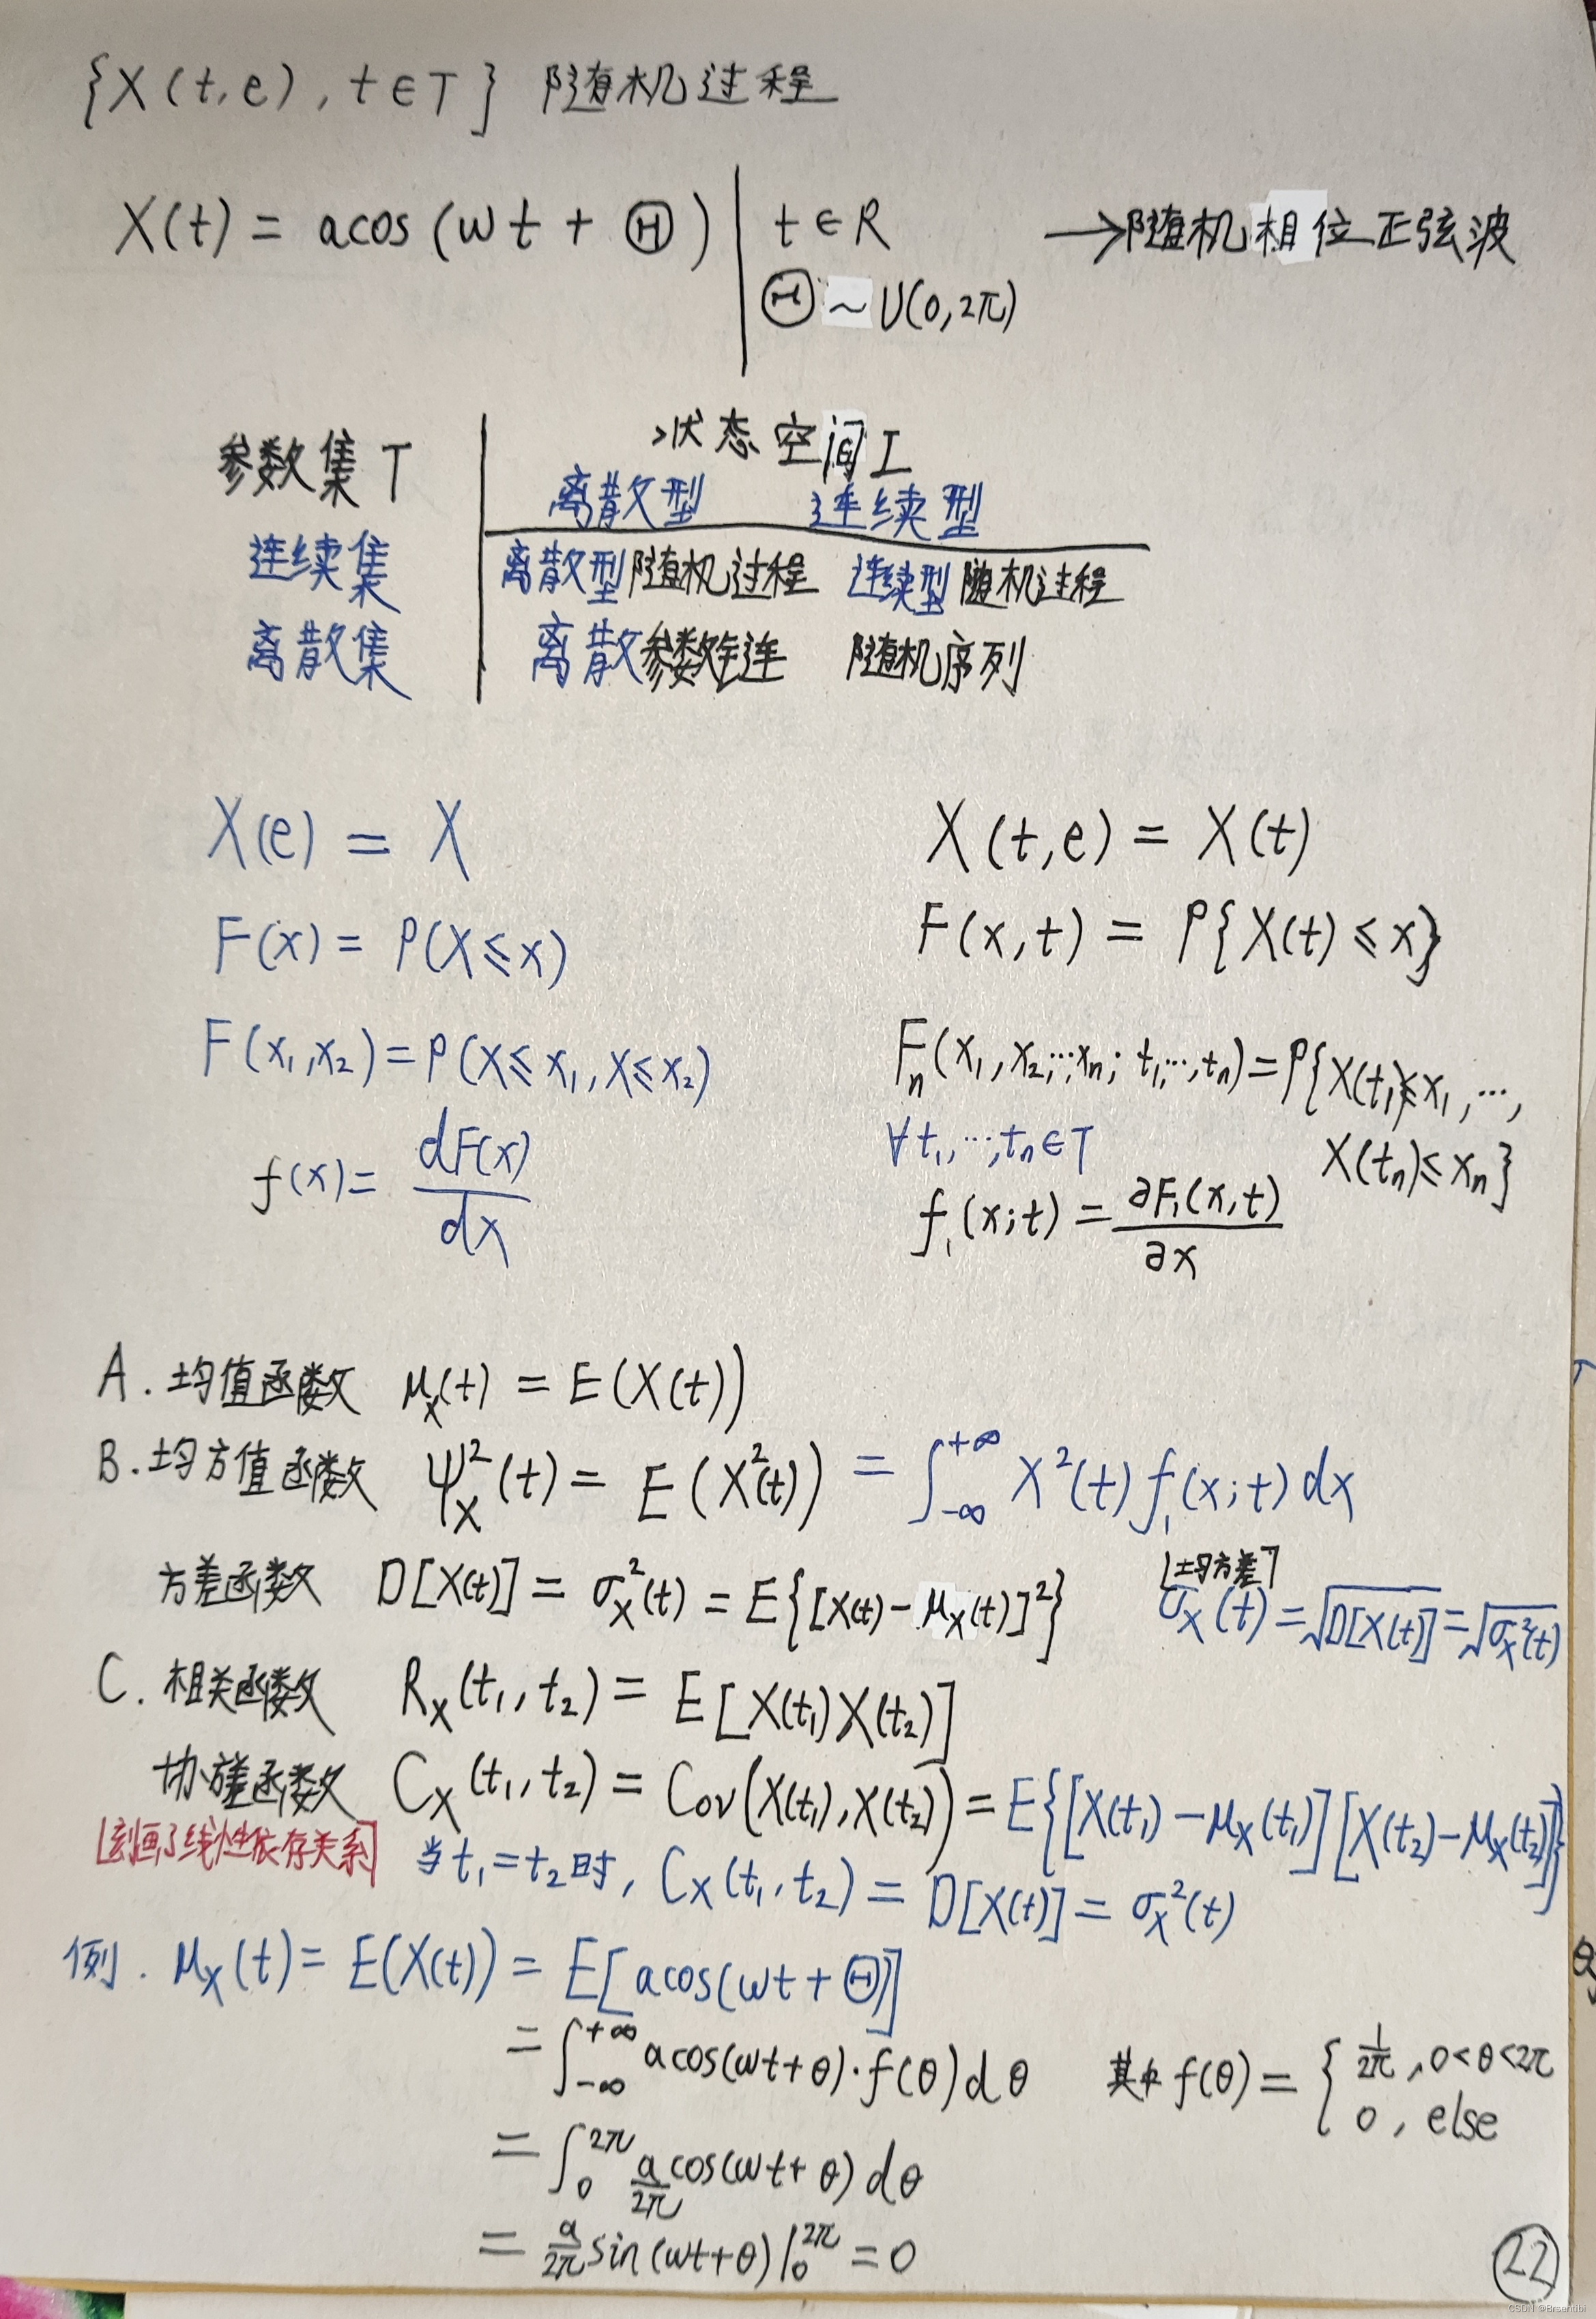 {X(t,e), t∈T} 随机过程
X(t) = acos(ωt + Θ) | t∈R →随机相位正弦波
Θ ~ U(0,2π)
参数集 T 状态空间 I
离散型 连续型
连续集 离散型随机过程 连续型随机过程
离散集 离散参数链 随机序列
X(e) = X X(t,e) = X(t)
F(x) = P(X≤x) F(x,t) = P{X(t)≤x}
F(x₁,x₂) = P(X≤x₁, X≤x₂) Fₙ(x₁,x₂,…,xₙ; t₁,…,tₙ) = P{X(t₁)≤x₁,…,
∀t₁,…,tₙ∈T X(tₙ)≤xₙ}
f(x) = dF(x)/dx f₁(x;t) = ∂F₁(x,t)/∂x
A. 均值函数 μ_X(t) = E(X(t))
B. 均方值函数 Ψ_X²(t) = E(X²(t)) = ∫_{-∞}^{+∞} X²(t) f₁(x;t) dx
[均方差]
方差函数 D[X(t)] = σ_X²(t) = E{[X(t)-μ_X(t)]²} σ_X(t) = √D[X(t)] = √σ_X²(t)
C. 相关函数 R_X(t₁,t₂) = E[X(t₁)X(t₂)]
协方差函数 C_X(t₁,t₂) = Cov(X(t₁),X(t₂)) = E{[X(t₁)-μ_X(t₁)][X(t₂)-μ_X(t₂)]}
[刻画了线性依存关系] 当t₁=t₂时, C_X(t₁,t₂) = D[X(t)] = σ_X²(t)
例. μ_X(t) = E(X(t)) = E[acos(ωt+Θ)]
= ∫_{-∞}^{+∞} acos(ωt+θ)·f(θ)dθ 其中 f(θ) = { 1/2π, 0<θ<2π
0, else
= ∫₀^{2π} a/2π cos(ωt+θ) dθ
= a/2π sin(ωt+θ)|₀^{2π} = 0
22
CSDN @Brsentibi